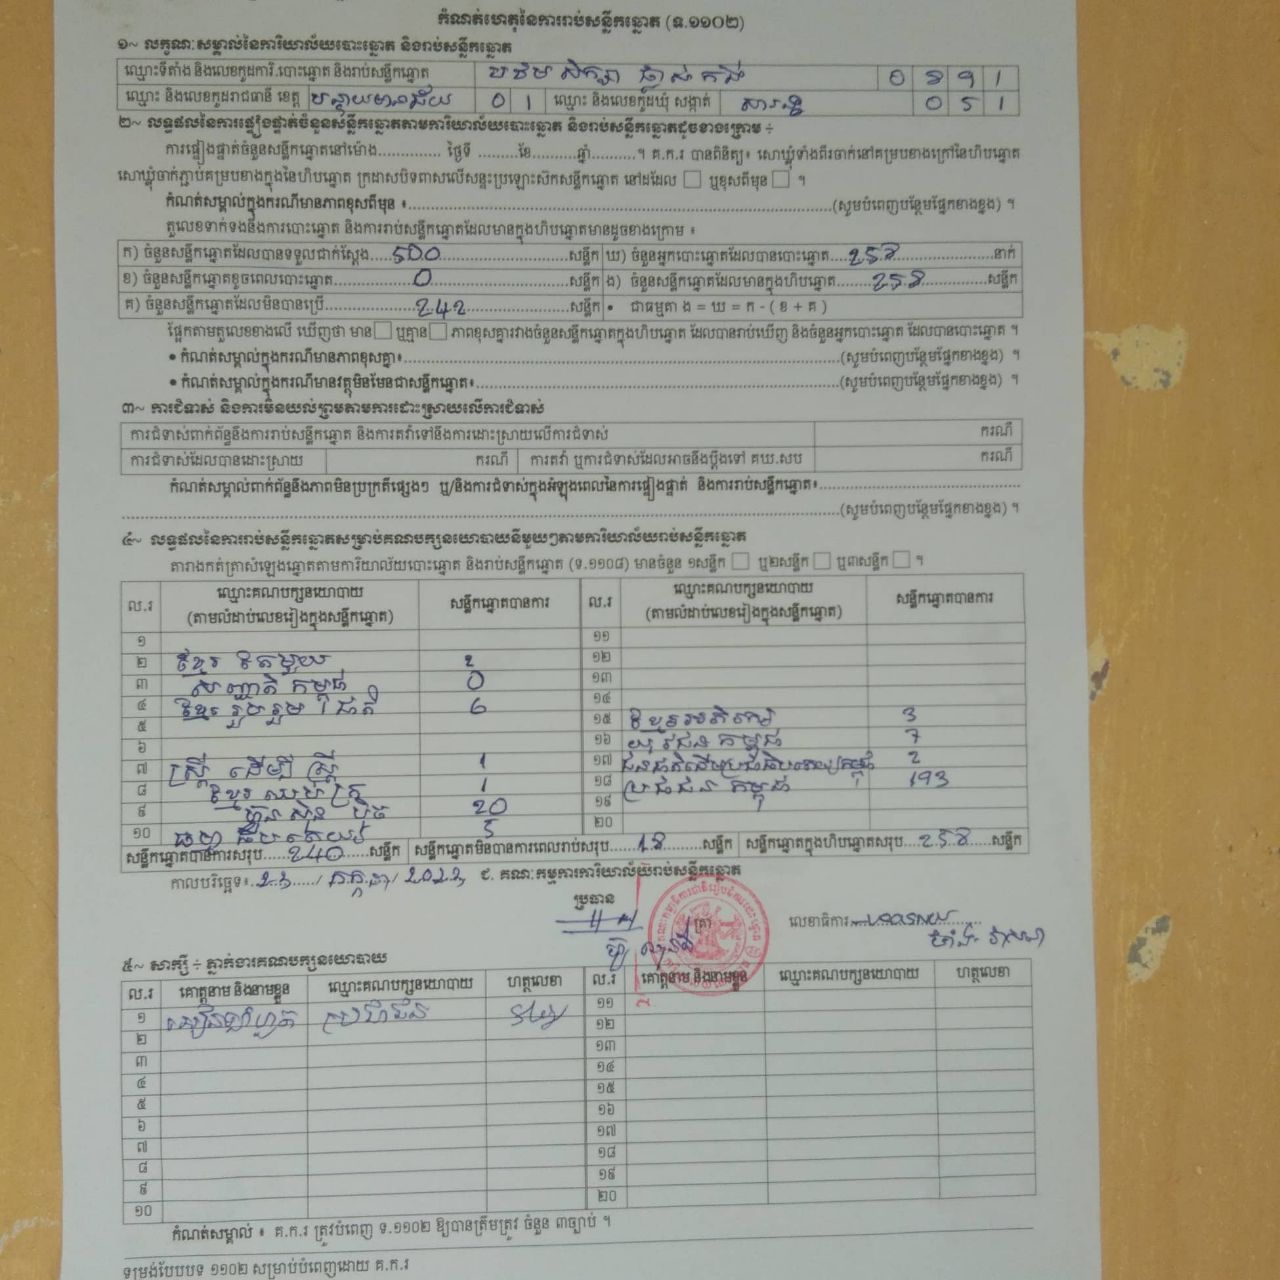 កំណត់ហេតុនៃការរាប់សន្លឹកឆ្នោត (ទ.១១០២)
១~ លក្ខណៈសម្គាល់នៃការិយាល័យបោះឆ្នោត និងរាប់សន្លឹកឆ្នោត
ឈ្មោះទីតាំង និងលេខកូដការិ.បោះឆ្នោត និងរាប់សន្លឹកឆ្នោត បឋមសិក្សា 0 1
ឈ្មោះ និងលេខកូដរាជធានី ខេត្ត បន្ទាយមានជ័យ 0 1 ឈ្មោះ និងលេខកូដឃុំ សង្កាត់ 0 5 1
២~ លទ្ធផលនៃការផ្ទៀងផ្ទាត់ចំនួនសន្លឹកឆ្នោតតាមការិយាល័យបោះឆ្នោត និងរាប់សន្លឹកឆ្នោតដូចខាងក្រោម ÷
ការផ្ទៀងផ្ទាត់ចំនួនសន្លឹកឆ្នោតនៅម៉ោង.............. ថ្ងៃទី .........ខែ..........ឆ្នាំ..........។ គ.ក.រ បានពិនិត្យ៖ សោឃ្លុំទាំងពីរចាក់នៅគម្របខាងក្រៅនៃហិបឆ្នោត
សោឃ្លុំចាក់ភ្ជាប់គម្របខាងក្នុងនៃហិបឆ្នោត ក្រដាសបិទពាសលើសន្ទះប្រឡោះសិកសន្លឹកឆ្នោត នៅដដែល ☐ ឬខុសពីមុន ☐ ។
កំណត់សម្គាល់ក្នុងករណីមានភាពខុសពីមុន ៖.......(សូមបំពេញបន្ថែមផ្នែកខាងខ្នង) ។
តួលេខទាក់ទងនឹងការបោះឆ្នោត និងការរាប់សន្លឹកឆ្នោតដែលមានក្នុងហិបឆ្នោតមានដូចខាងក្រោម ៖
ក) ចំនួនសន្លឹកឆ្នោតដែលបានទទួលជាក់ស្តែង....500.......សន្លឹក ឃ) ចំនួនអ្នកបោះឆ្នោតដែលបានបោះឆ្នោត...258.......នាក់
ខ) ចំនួនសន្លឹកឆ្នោតខូចពេលបោះឆ្នោត.......0.......សន្លឹក ង) ចំនួនសន្លឹកឆ្នោតដែលមានក្នុងហិបឆ្នោត......258.......សន្លឹក
គ) ចំនួនសន្លឹកឆ្នោតដែលមិនបានប្រើ.......242.......សន្លឹក • ជាធម្មតា ង = ឃ = ក - ( ខ + គ )
ផ្អែកតាមតួលេខខាងលើ ឃើញថា មាន ☐ ឬគ្មាន ☐ ភាពខុសគ្នារវាងចំនួនសន្លឹកឆ្នោតក្នុងហិបឆ្នោត ដែលបានរាប់ឃើញ និងចំនួនអ្នកបោះឆ្នោត ដែលបានបោះឆ្នោត ។
• កំណត់សម្គាល់ក្នុងករណីមានភាពខុសគ្នា៖.......(សូមបំពេញបន្ថែមផ្នែកខាងខ្នង) ។
• កំណត់សម្គាល់ក្នុងករណីមានវត្ថុមិនមែនជាសន្លឹកឆ្នោត៖.......(សូមបំពេញបន្ថែមផ្នែកខាងខ្នង) ។
៣~ ការជំទាស់ និងការមិនយល់ព្រមតាមការដោះស្រាយលើការជំទាស់
ការជំទាស់ពាក់ព័ន្ធនឹងការរាប់សន្លឹកឆ្នោត និងការតវ៉ាទៅនឹងការដោះស្រាយលើការជំទាស់ ករណី
ការជំទាស់ដែលបានដោះស្រាយ ករណី ការតវ៉ា ឬការជំទាស់ដែលអាចនឹងប្តឹងទៅ គឃ.សប ករណី
កំណត់សម្គាល់ពាក់ព័ន្ធនឹងភាពមិនប្រក្រតីផ្សេងៗ ឬ/និងការជំទាស់ក្នុងអំឡុងពេលនៃការផ្ទៀងផ្ទាត់ និងការរាប់សន្លឹកឆ្នោត៖.......
.......(សូមបំពេញបន្ថែមផ្នែកខាងខ្នង) ។
៤~ លទ្ធផលនៃការរាប់សន្លឹកឆ្នោតសម្រាប់គណបក្សនយោបាយនីមួយៗតាមការិយាល័យរាប់សន្លឹកឆ្នោត
តារាងកត់ត្រាសំឡេងឆ្នោតតាមការិយាល័យបោះឆ្នោត និងរាប់សន្លឹកឆ្នោត (ទ.១១០៨) មានចំនួន ១សន្លឹក ☐ ឬ២សន្លឹក ☐ ឬ៣សន្លឹក ☐ ។
ល.រ ឈ្មោះគណបក្សនយោបាយ (តាមលំដាប់លេខរៀងក្នុងសន្លឹកឆ្នោត) សន្លឹកឆ្នោតបានការ ល.រ ឈ្មោះគណបក្សនយោបាយ (តាមលំដាប់លេខរៀងក្នុងសន្លឹកឆ្នោត) សន្លឹកឆ្នោតបានការ
១ ១១
២ ខ្មែរតែមួយ 2 ១២
៣ សញ្ជាតិកម្ពុជា 0 ១៣
៤ ខ្មែររួបរួមជាតិ 6 ១៤
៥ ១៥ 3
៦ ១៦ យុវជនកម្ពុជា 7
៧ ស្ត្រីដើម្បីស្ត្រី 1 ១៧ 2
៨ ខ្មែរឈប់ក្រ 1 ១៨ ប្រជាជនកម្ពុជា 193
៩ ហ្វ៊ុនស៊ិនប៉ិច 20 ១៩
១០ ធម្មាធិបតេយ្យ 5 ២០
សន្លឹកឆ្នោតបានការសរុប.....240.....សន្លឹក សន្លឹកឆ្នោតមិនបានការពេលរាប់សរុប.....18.....សន្លឹក សន្លឹកឆ្នោតក្នុងហិបឆ្នោតសរុប...258...សន្លឹក
កាលបរិច្ឆេទ៖ / កក្កដា / ជ. គណៈកម្មការការិយាល័យរាប់សន្លឹកឆ្នោត
ប្រធាន
ត្រា លេខាធិការ
៥~ សាក្សី ÷ ភ្នាក់ងារគណបក្សនយោបាយ
ល.រ គោត្តនាម និងនាមខ្លួន ឈ្មោះគណបក្សនយោបាយ ហត្ថលេខា ល.រ គោត្តនាម និងនាមខ្លួន ឈ្មោះគណបក្សនយោបាយ ហត្ថលេខា
១ ប្រជាជន ១១
២ ១២
៣ ១៣
៤ ១៤
៥ ១៥
៦ ១៦
៧ ១៧
៨ ១៨
៩ ១៩
១០ ២០
កំណត់សម្គាល់ ៖ គ.ក.រ ត្រូវបំពេញ ទ.១១០២ ឱ្យបានត្រឹមត្រូវ ចំនួន ៣ច្បាប់ ។
ទម្រង់បែបបទ ១១០២ សម្រាប់បំពេញដោយ គ.ក.រ